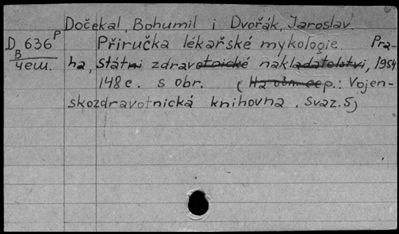 Dočekal, Bohumil i Dvořák, Jaroslav.
D 636 P Příručka lékařské mykologie. Pra-
B чеш. ha, Státní zdravotnické nakladatelství, 1954
148 с. s obr. (На обл. сер.: Vojen-
skozdravotnická knihovna. Svaz. 5)